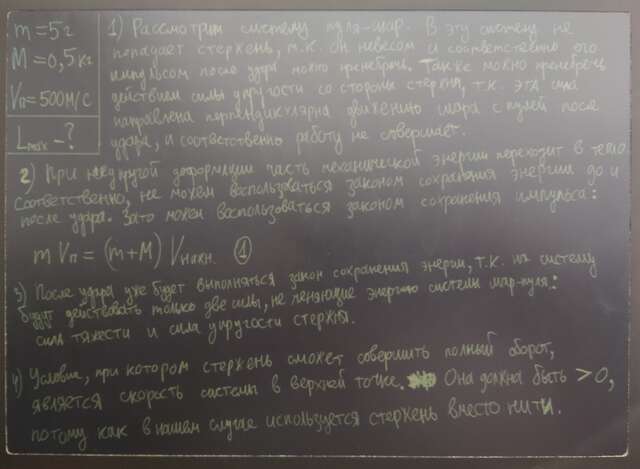 m = 5г
M = 0,5кг
Vп = 500м/с
Lmax - ?
1) Рассмотрим систему пуля-шар. В эту систему не
попадает стержень, т.к. он невесом и соответственно его
импульсом после удара можно пренебречь. Также можно пренебречь
действием силы упругости со стороны стержня, т.к. эта сила
направлена перпендикулярна движению шара с пулей после
удара, и соответственно работу не совершает.
2) При неупругой деформации часть механической энергии переходит в тепло
Соответственно, не можем воспользоваться законом сохранения энергии до и
после удара. Зато можем воспользоваться законом сохранения импульса:
m Vп = (m+M) Vнижн. ①
3) После удара уже будет выполняться закон сохранения энергии, т.к. на систему
будут действовать только две силы, не меняющие энергию системы шар-пуля:
сила тяжести и сила упругости стержня.
4) Условие, при котором стержень сможет совершить полный оборот,
является скорость системы в верхней точке. Она должна быть > 0,
потому как в нашем случае используется стержень вместо нити.